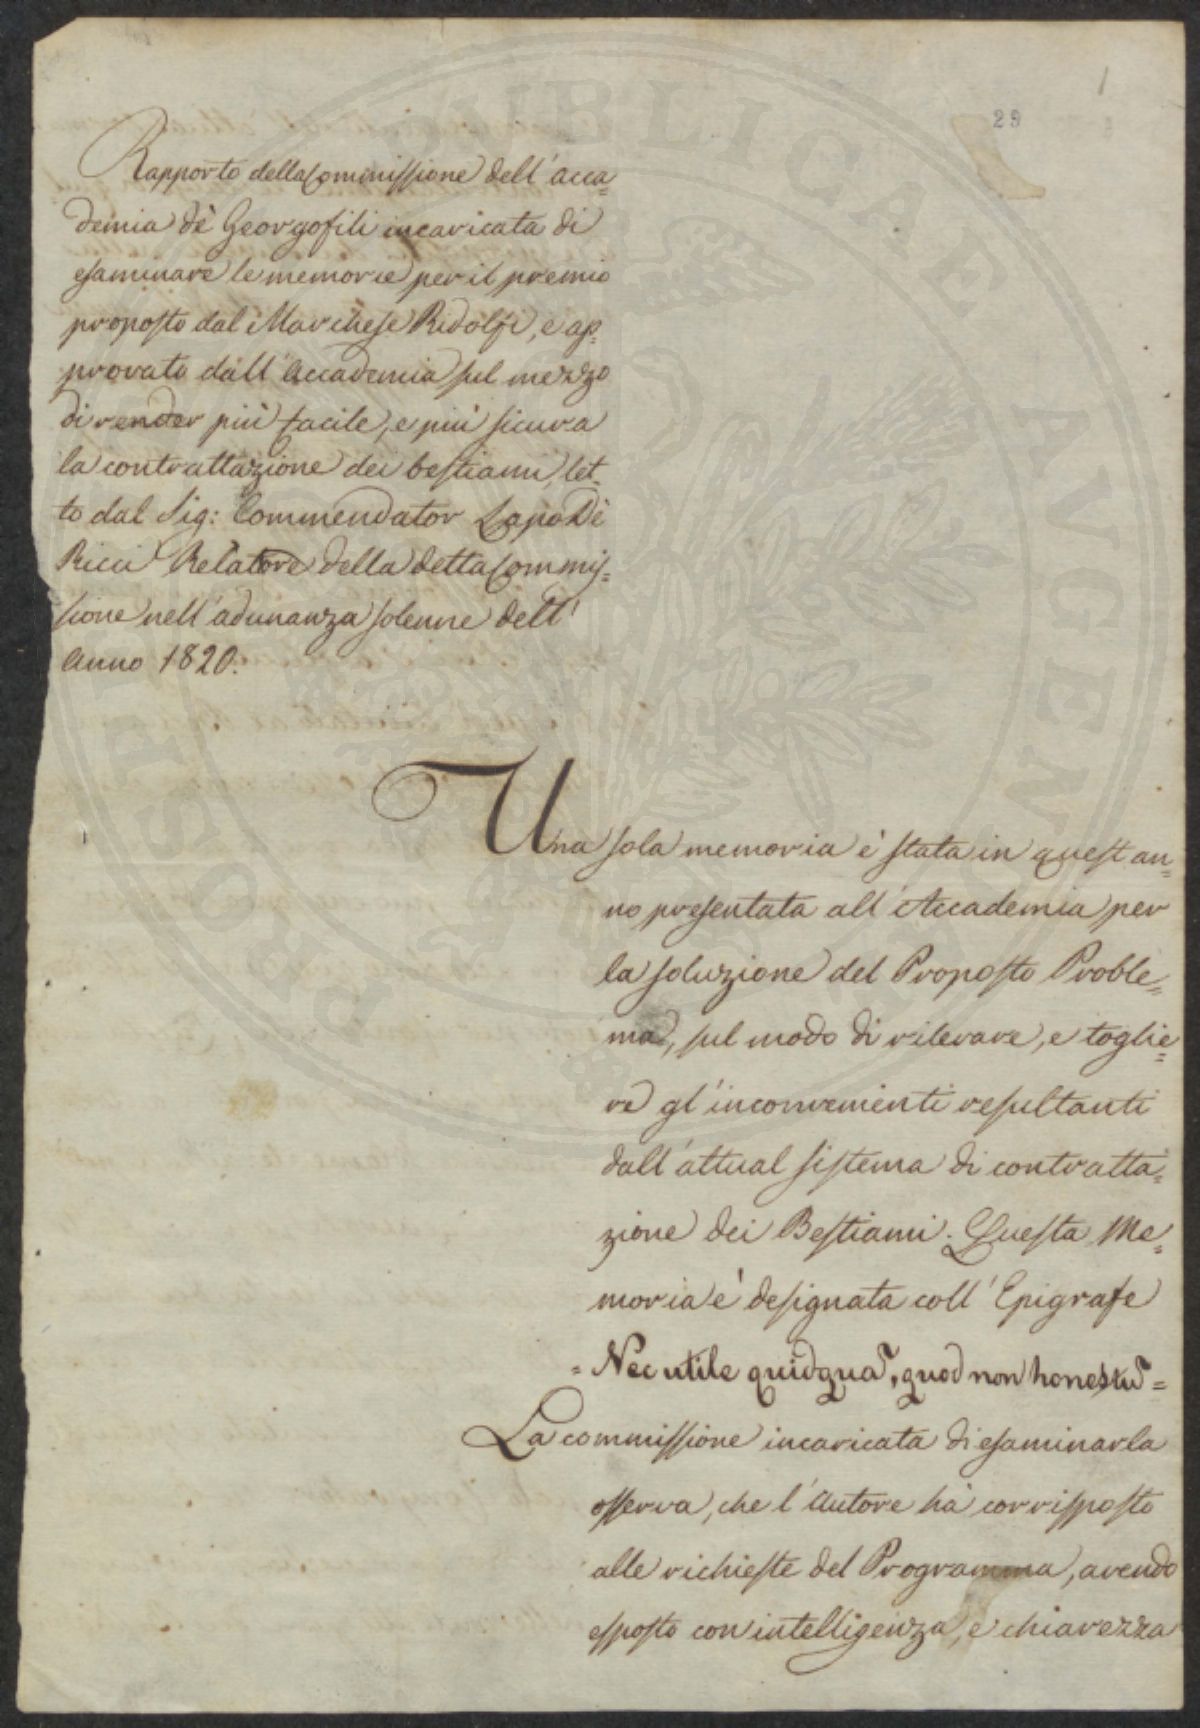 29
1
Rapporto della Commissione dell'acca=
demia de' Georgofili incaricata di
esaminare le memorie per il premio
proposto dal Marchese Ridolfi, e ap=
provato dall'accademia sul mezzo
di render più facile, e più sicura
la contrattazione dei bestiami, let=
to dal Sig: Commendator Lapo De'
Ricci Relatore della detta Commis=
sione nell'adunanza solenne dell'
anno 1820.
Una sola memoria è stata in quest'an=
no presentata all'Accademia per
la soluzione del Proposto Proble=
ma, sul modo di rilevare, e toglie=
re gl'inconvenienti resultanti
dall'attual sistema di contratta=
zione dei Bestiami. Questa Me=
moria è designata coll'Epigrafe
= Nec utile quidquã, quod non honestũ =
La commissione incaricata di esaminarla
osserva, che l'autore hà corrisposto
alle richieste del Programma, avendo
esposto con intelligenza, e chiarezza
PUBLICAE